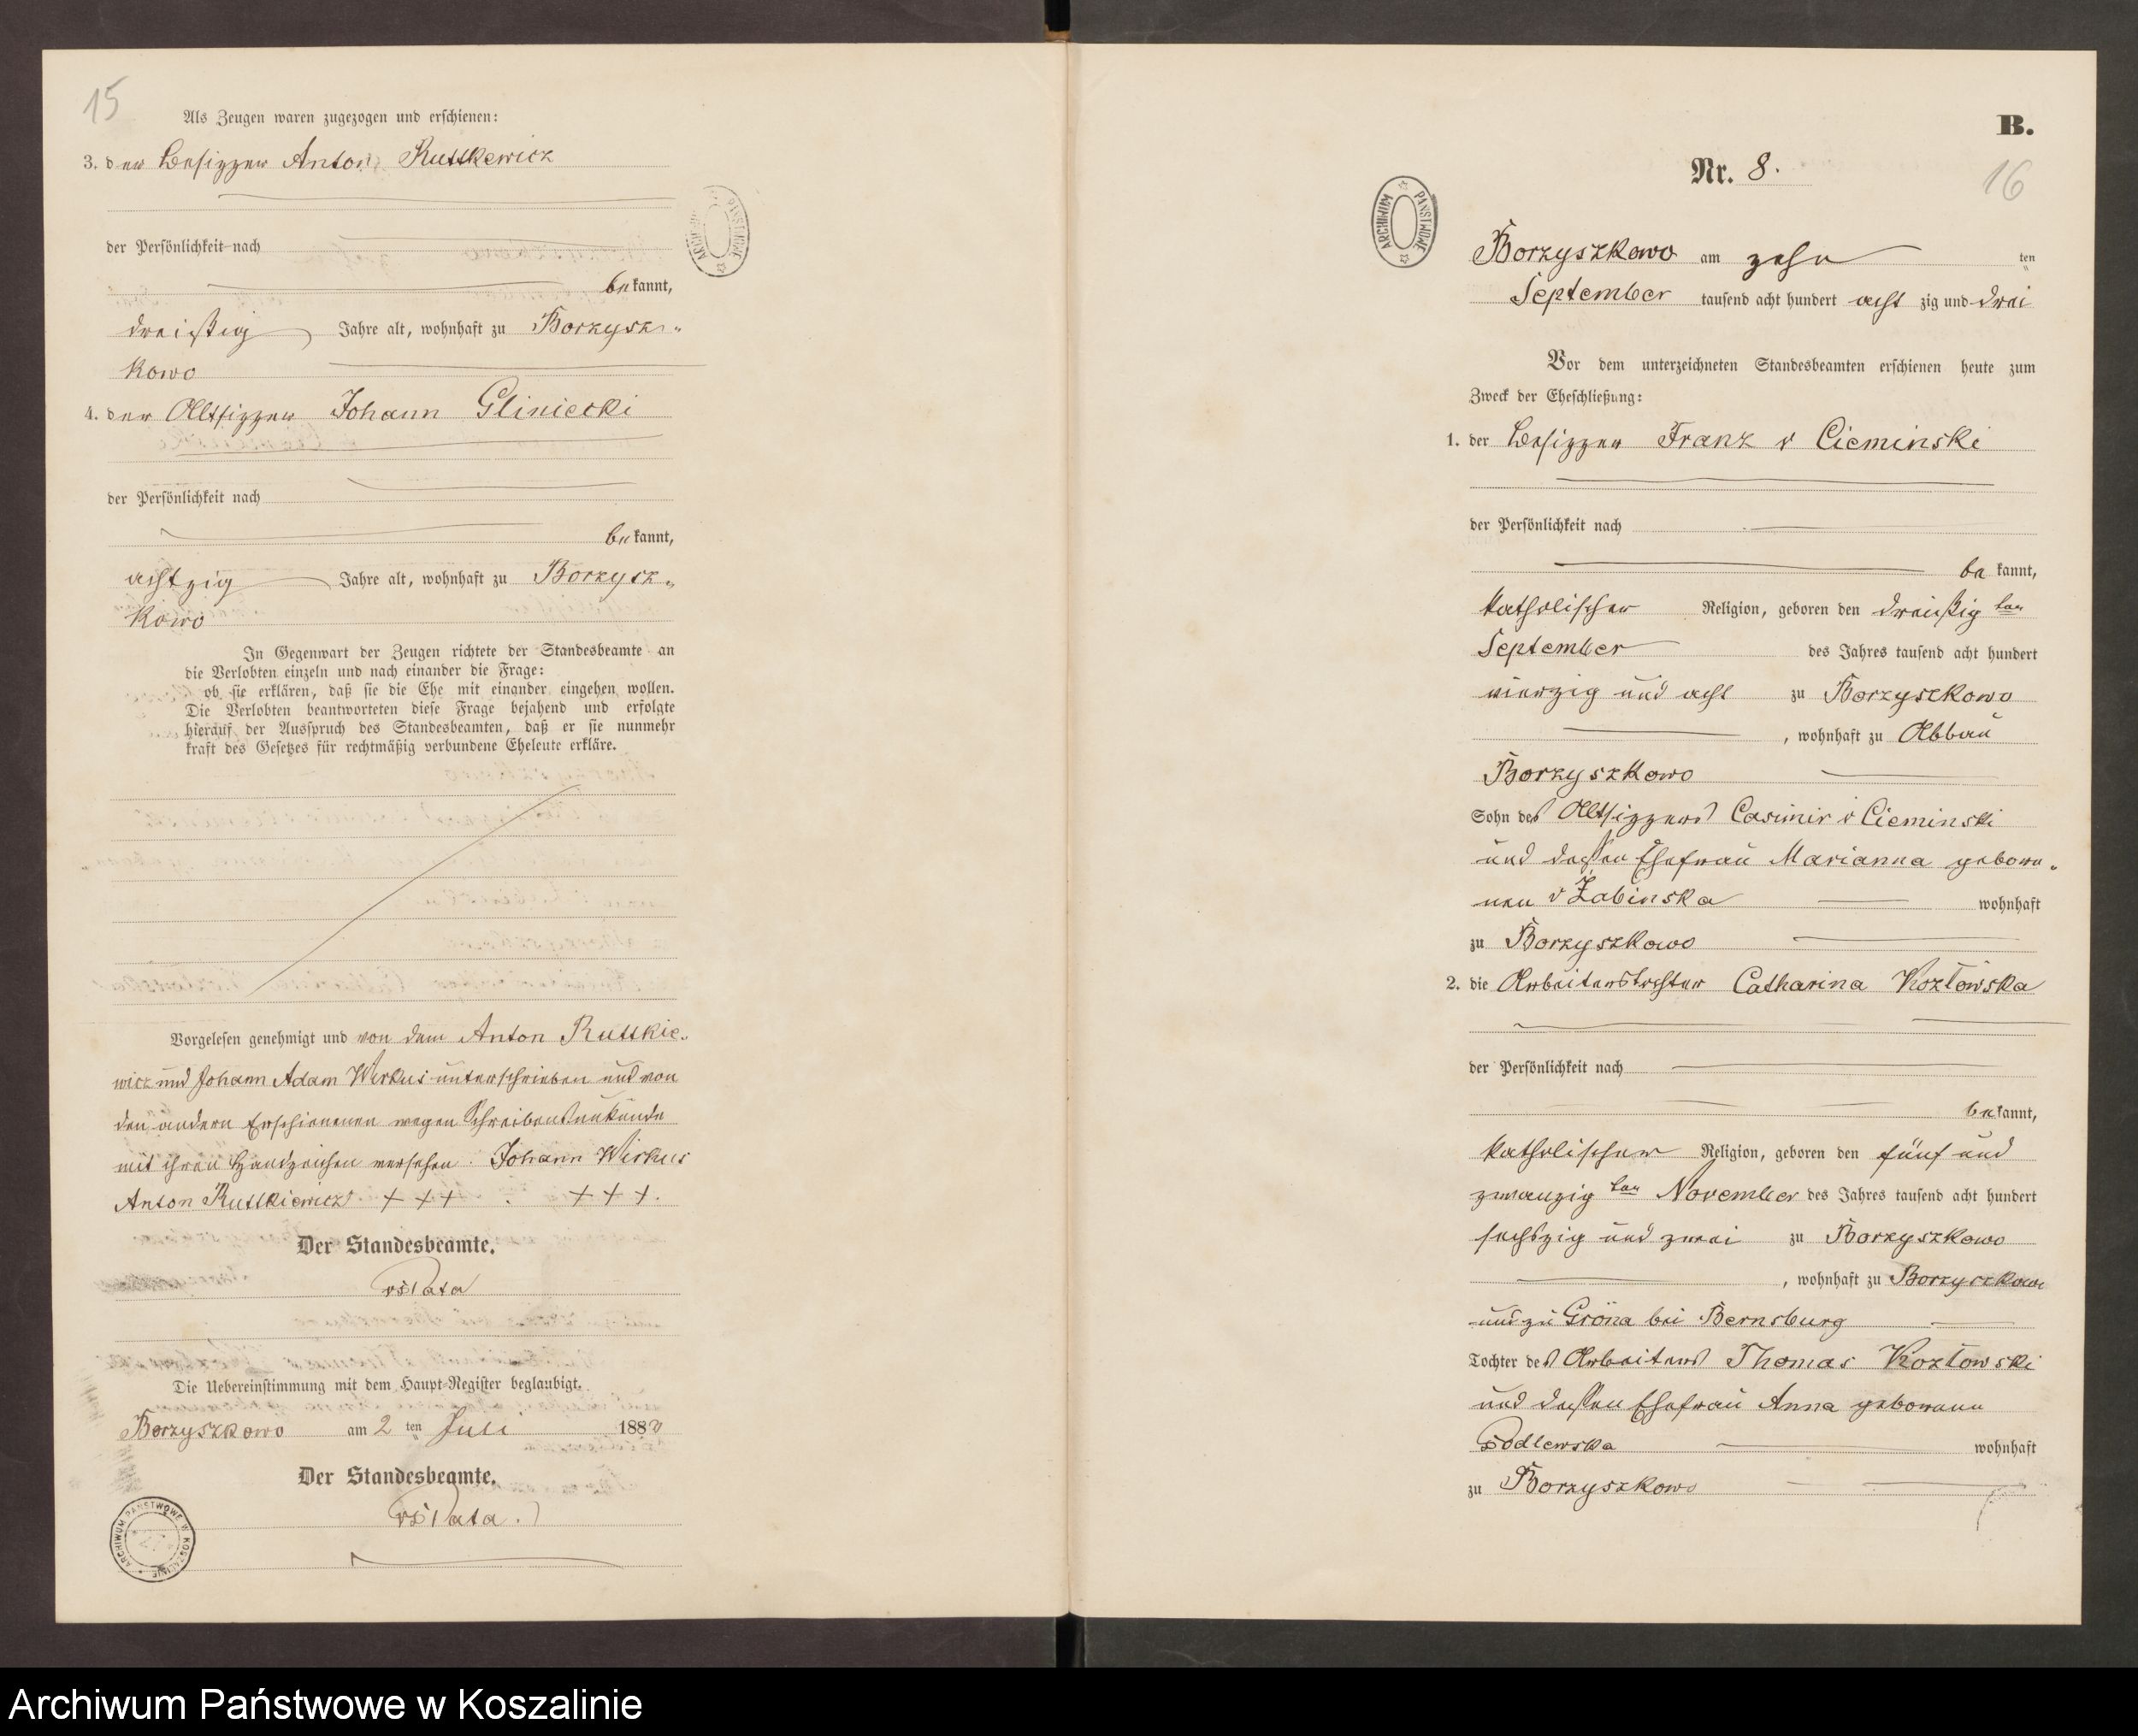 15
Als Zeugen waren zugezogen und erschienen:
3. der Besitzer Anton Ruttkewicz
der Persönlichkeit nach
be kannt,
dreißig Jahre alt, wohnhaft zu Borzysz-
kowo
4. der Altsitzer Johann Gliniecki
der Persönlichkeit nach
be kannt,
achtzig Jahre alt, wohnhaft zu Borzysz-
kowo
In Gegenwart der Zeugen richtete der Standesbeamte an
die Verlobten einzeln und nach einander die Frage:
ob sie erklären, daß sie die Ehe mit einander eingehen wollen.
Die Verlobten beantworteten diese Frage bejahend und erfolgte
hierauf der Ausspruch des Standesbeamten, daß er sie nunmehr
kraft des Gesetzes für rechtmäßig verbundene Eheleute erkläre.
Vorgelesen genehmigt und von dem Anton Ruttkie-
wicz und Johann Adam Wirkus unterschrieben und von
den andern Erschienenen wegen Schreibensunkunde
mit ihren Handzeichen versehen. Johann Wirkus
Anton Ruttkiewicz + + + . + + +.
Der Standesbeamte.
Die Uebereinstimmung mit dem Haupt-Register beglaubigt.
Borzyszkowo am 2 ten Juli 1883
Der Standesbeamte.
ARCHIWUM PAŃSTWOWE W KOSZALINIE
ARCHIWUM PAŃSTWOWE
B.
Nr. 8.
16
ARCHIWUM PAŃSTWOWE
Borzyszkowo am zehn ten
September tausend acht hundert acht zig und drei
Vor dem unterzeichneten Standesbeamten erschienen heute zum
Zweck der Eheschließung:
1. der Besitzer Franz v Cieminski
der Persönlichkeit nach
be kannt,
katholischer Religion, geboren den dreißig ten
September des Jahres tausend acht hundert
vierzig und acht zu Borzyszkowo
, wohnhaft zu Abbau
Borzyszkowo
Sohn des Altsitzers Casimir v Cieminski
und dessen Ehefrau Marianna gebore-
nen v Żabinska wohnhaft
zu Borzyszkowo
2. die Arbeiterstochter Catharina Kozłowska
der Persönlichkeit nach
be kannt,
katholischer Religion, geboren den fünf und
zwanzig ten November des Jahres tausend acht hundert
sechszig und zwei zu Borzyszkowo
, wohnhaft zu Borzyszkowo
und zu Gröna bei Bernsburg
Tochter des Arbeiters Thomas Kozłowski
und dessen Ehefrau Anna geborene
Podlewska wohnhaft
zu Borzyszkowo
Archiwum Państwowe w Koszalinie